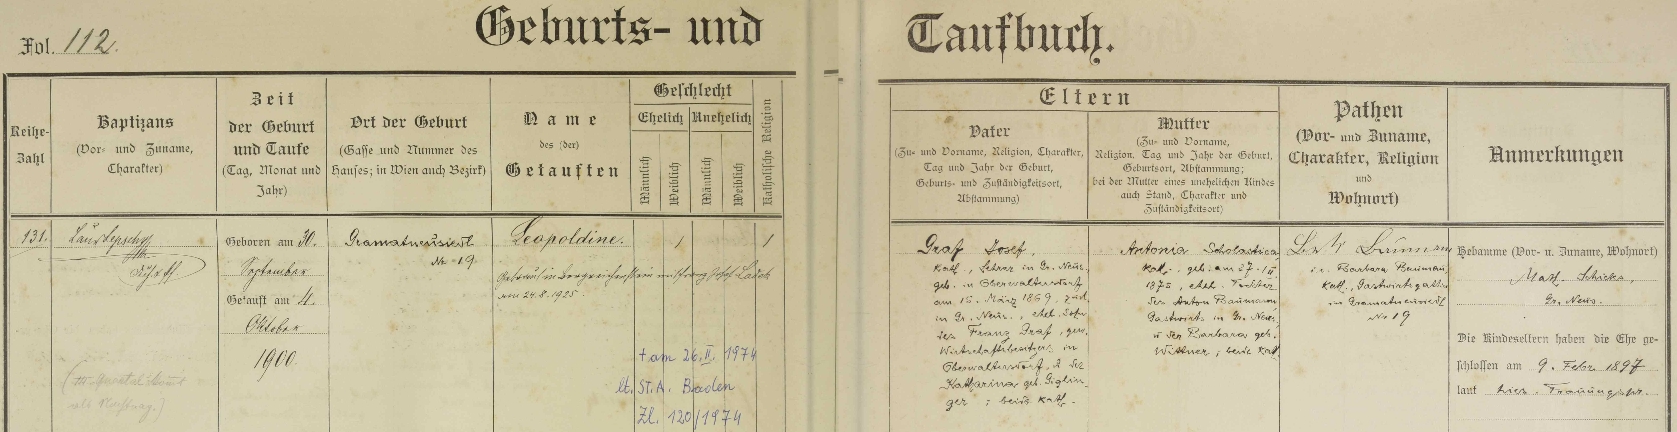 Fol. 112.
Geburts- und Taufbuch.
Reihe-Zahl
Baptizans
(Vor- und Zuname, Charakter)
Zeit
der Geburt und Taufe
(Tag, Monat und Jahr)
Ort der Geburt
(Gasse und Nummer des Hauses; in Wien auch Bezirk)
Name
des (der)
Getauften
Geschlecht
Ehelich
Unehelich
Männlich
Weiblich
Männlich
Weiblich
Katholische Religion
Eltern
Vater
(Zu- und Vorname, Religion, Charakter,
Tag und Jahr der Geburt,
Geburts- und Zuständigkeitsort,
Abstammung)
Mutter
(Zu- und Vorname,
Religion, Tag und Jahr der Geburt,
Geburtsort, Abstammung;
bei der Mutter eines unehelichen Kindes
auch Stand, Charakter und
Zuständigkeitsort)
Pathen
(Vor- und Zuname,
Charakter, Religion
und
Wohnort)
Anmerkungen
131.
Geboren am 30.
September
Getauft am 4.
Oktober
1900.
Gramatneusiedl
No 19
Leopoldine.
1
1
am 24.8.1925.
† am 26. II. 1974
lt. ST.A. Baden
Zl. 120/1974
Graf Josef,
kath., Lehrer in Gr. Neus.
geb. in Oberwaltersdorf
am 15. März 1869, zust.
in Gr. Neus., ehel. Sohn
des Franz Graf, gew.
Wirtschaftsbesitzers in
Oberwaltersdorf, u der
Katharina geb.
; beide kath.
Antonia Scholastica
kath., geb. am 27.
1875, ehel. Tochter
des Anton Baumann
Gastwirts in Gr. Neus.
u der Barbara geb.
Wittner; beide kath.
Barbara Bauman,
kath., Gastwirtsgattin
in Gramatneusiedl
No 19
Hebamme (Vor- u. Zuname, Wohnort)
Gr. Neus.
Die Kindeseltern haben die Ehe ge-
schlossen am 9. Febr 1897
laut hies.